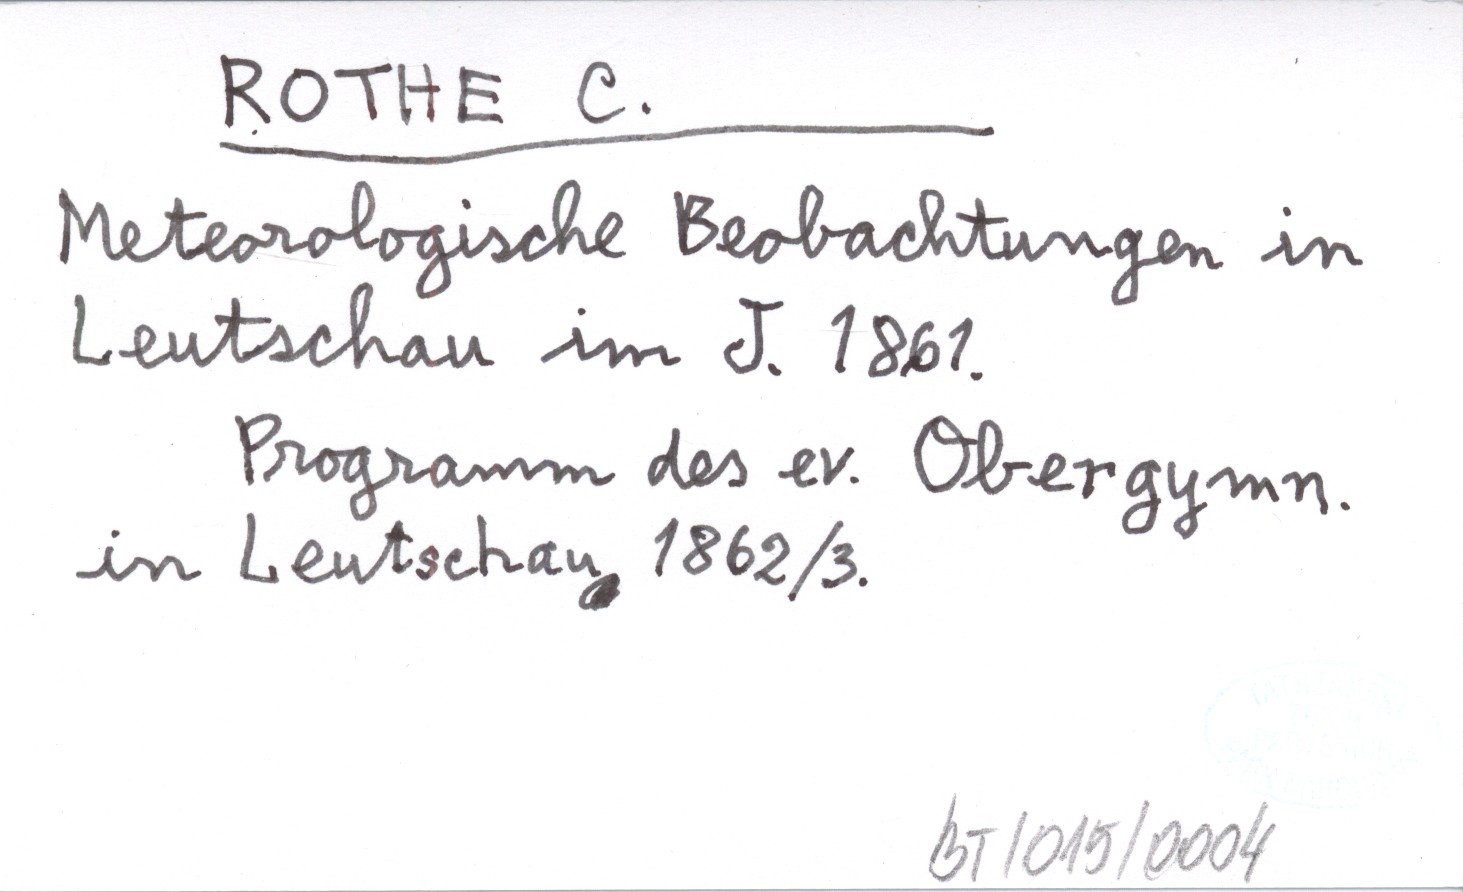 ROTHE C.
Meteorologische Beobachtungen in
Leutschau im J. 1861.
Programm des ev. Obergymn.
in Leutschau, 1862/3.
BT/015/0004